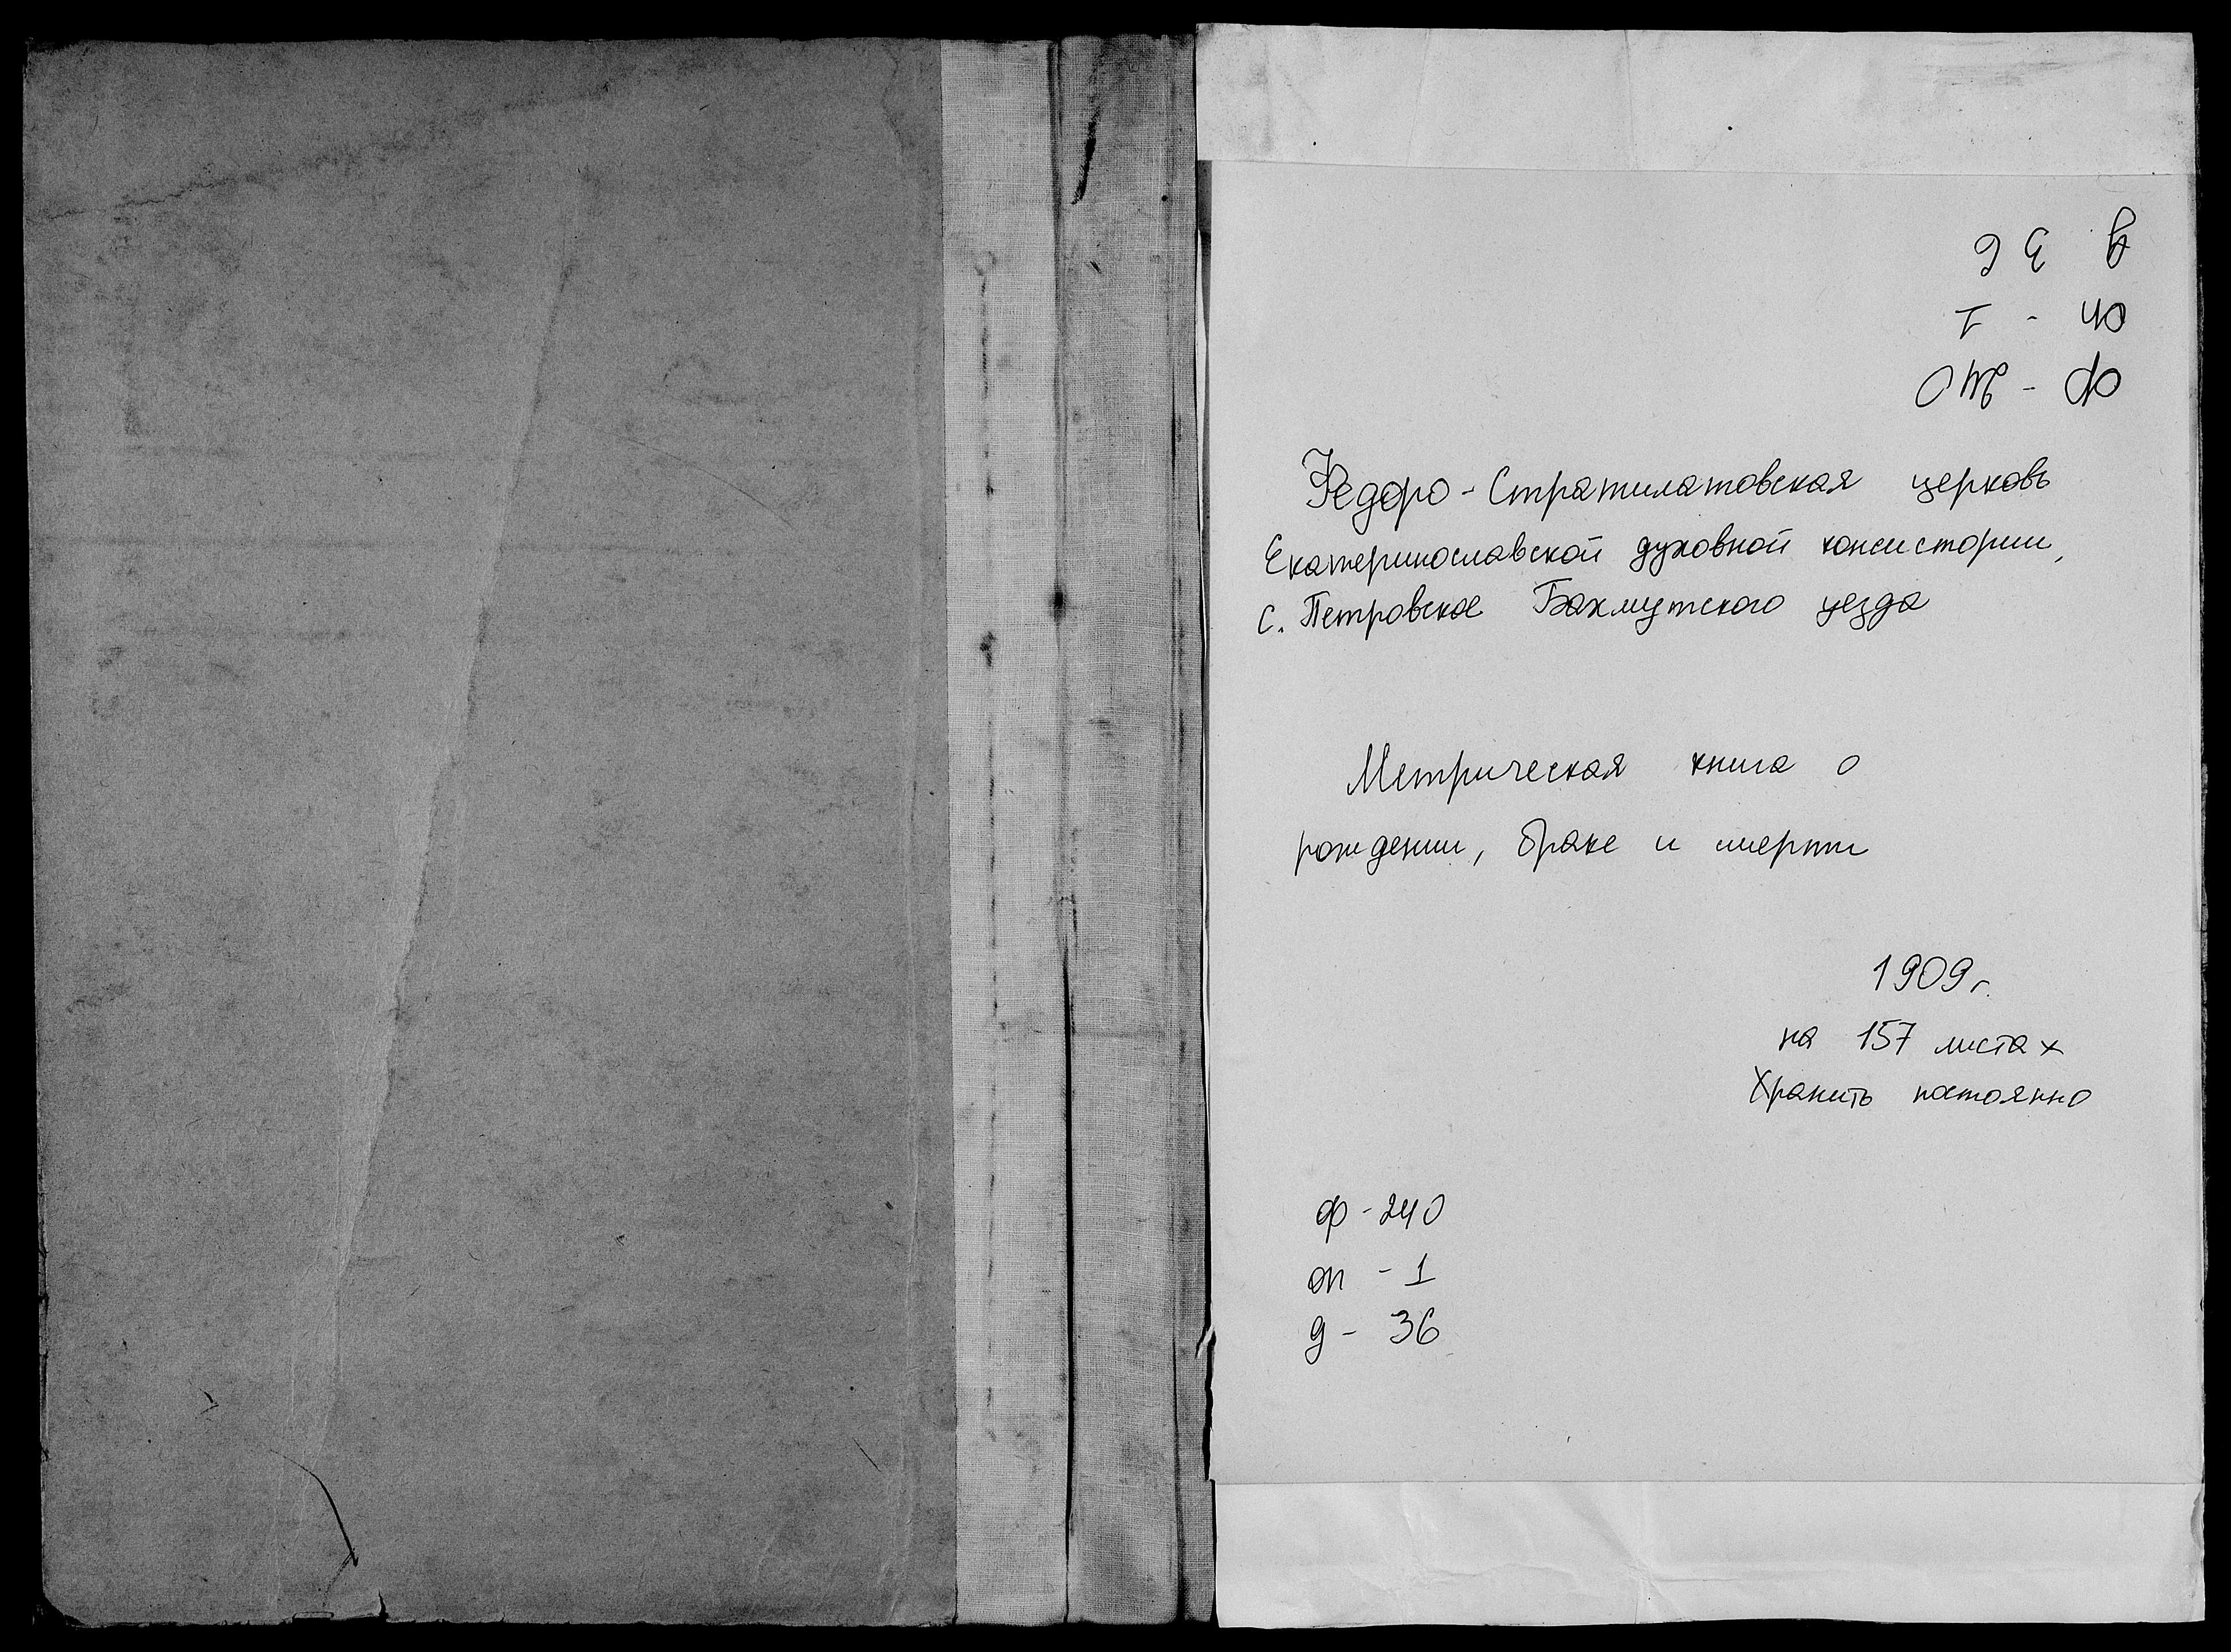 ф - 240
оп - 1
д 36
Федоро - Стратилатовская церковь
Екатеринославской духовной консистории,
с. Петровское Бахмутского уезда
Метрическая книга о
рождении, браке и смерти
1909 г.
на 157 листах
Хранить постоянно
ф - 240
оп - 1
д - 36